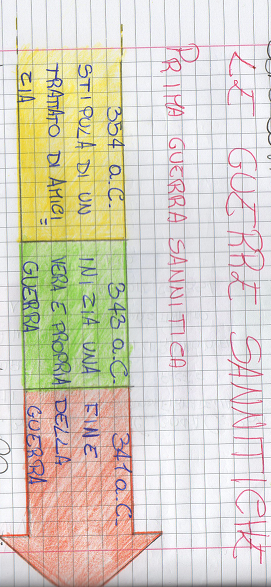 LE GUERRE SANNITICHE
PRIMA GUERRA SANNITICA
354 a.C.
STIPULA DI UN
TRATATO DI AMICI=
ZIA
343 a.C.
INIZIA UNA
VERA E PROPRIA
GUERRA
341 a.C.
FINE
DELLA
GUERRA